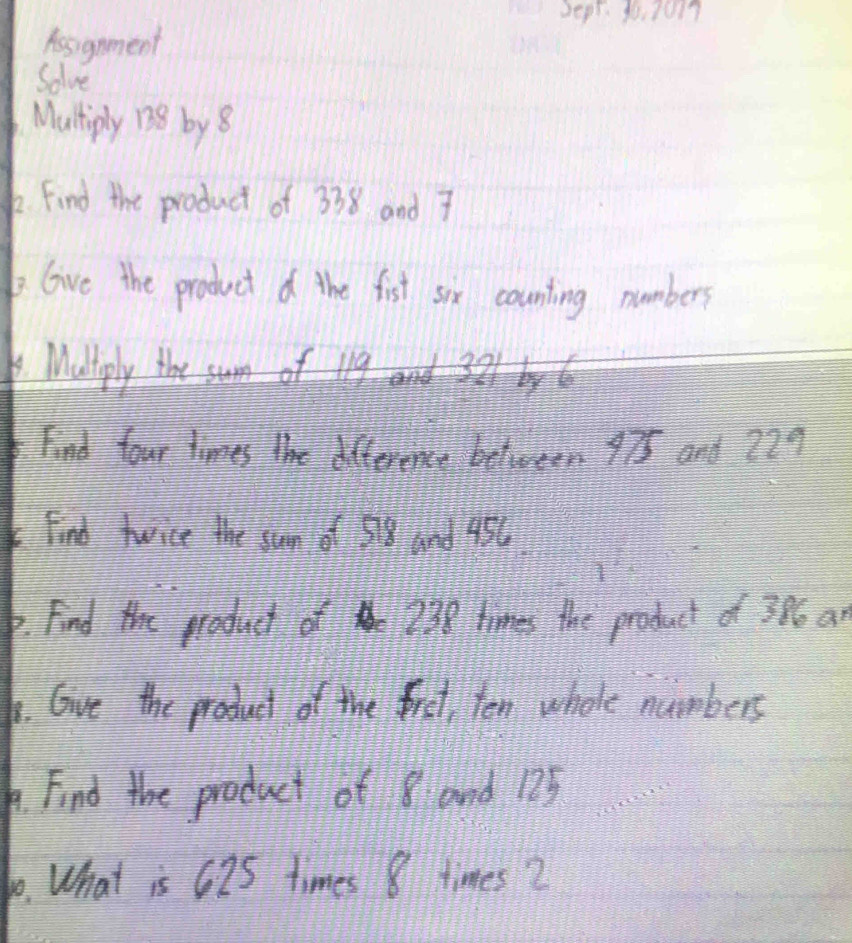 Sept. 30, 2019
Assignment
Solve
Multiply 138 by 8
2. Find the product of 338 and 7
3. Give the product of the fist six counting numbers
4. Multiply the sum of 119 and 321 by 6
5. Find four times the difference between 975 and 229
6. Find twice the sum of 518 and 456
7. Find the product of 238 times the product of 386 an
8. Give the product of the first, ten whole numbers
9. Find the product of 8 and 125
10. What is 625 times 8 times 2